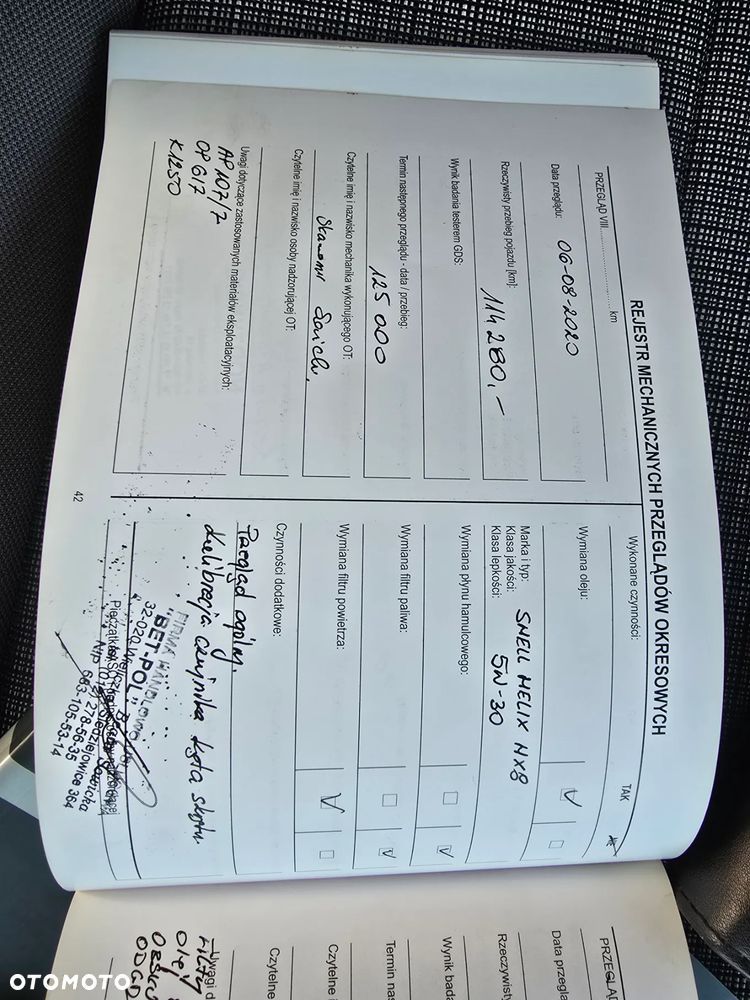 REJESTR MECHANICZNYCH PRZEGLĄDÓW OKRESOWYCH
PRZEGLĄD VIII.................... km
Data przeglądu: 06-08-2020
Rzeczywisty przebieg pojazdu [km]: 114 280,-
Wynik badania testerem GDS:
Termin następnego przeglądu - data / przebieg:
125 000
Czytelne imię i nazwisko mechanika wykonującego OT:
Czytelne imię i nazwisko osoby nadzorującej OT:
Uwagi dotyczące zastosowanych materiałów eksploatacyjnych:
AP 107/7
OP 617
K1250
Wykonane czynności:
TAK
Wymiana oleju:
Marka i typ: SHELL HELIX HX8
Klasa jakości:
Klasa lepkości: 5W-30
Wymiana płynu hamulcowego:
Wymiana filtru paliwa:
Wymiana filtru powietrza:
Czynności dodatkowe:
Przegląd ogólny.
Kalibracja czujnika kąta skrętu
FIRMA HANDLOWO
"BET-POL"
32-020 W
278-56-35
663-106-53-14
42
PRZEGLĄD
Data przeglą
Rzeczywisty
Wynik bada
Termin nast
Czytelne i
Czytelne
Uwagi d
OTOMOTO